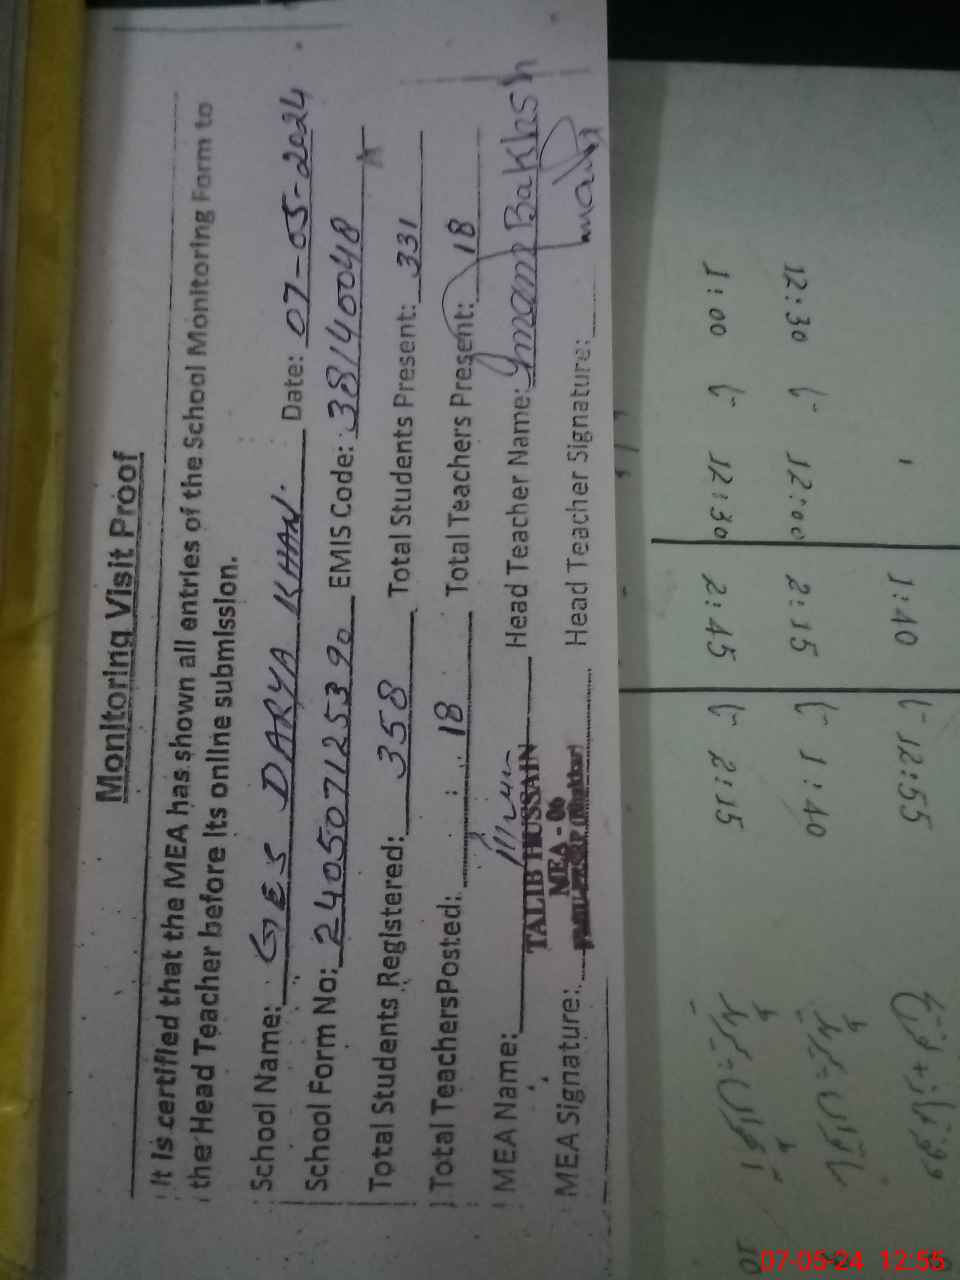 Monitoring Visit Proof
It is certified that the MEA has shown all entries of the School Monitoring Form to
the Head Teacher before its online submission.
School Name: GES DARYA KHAN. Date: 07-05-2024
School Form No: 24050712539 EMIS Code: 38140048
Total Students Registered: 358 Total Students Present: 331
Total TeachersPosted: 18 Total Teachers Present: 18
MEA Name: Head Teacher Name: Imam Bakhsh
TALIB HUSSAIN
MEA - 06
MEA Signature: Head Teacher Signature:
2:15 2:45 12:30 1:00
1:40 2:15 12:00 12:30
12:55 1:40
07-05-24 12:55